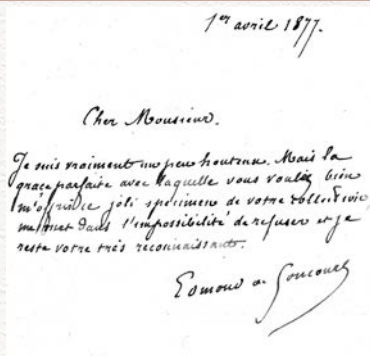 1er avril 1877.
Cher Monsieur.
Je suis vraiment un peu honteux. Mais la
grace parfaite avec laquelle vous voulez bien
m'offrir ce joli specimen de votre collection
me met dans l'impossibilité de refuser et je
reste votre très reconnaissant.
Edmond de Goncourt